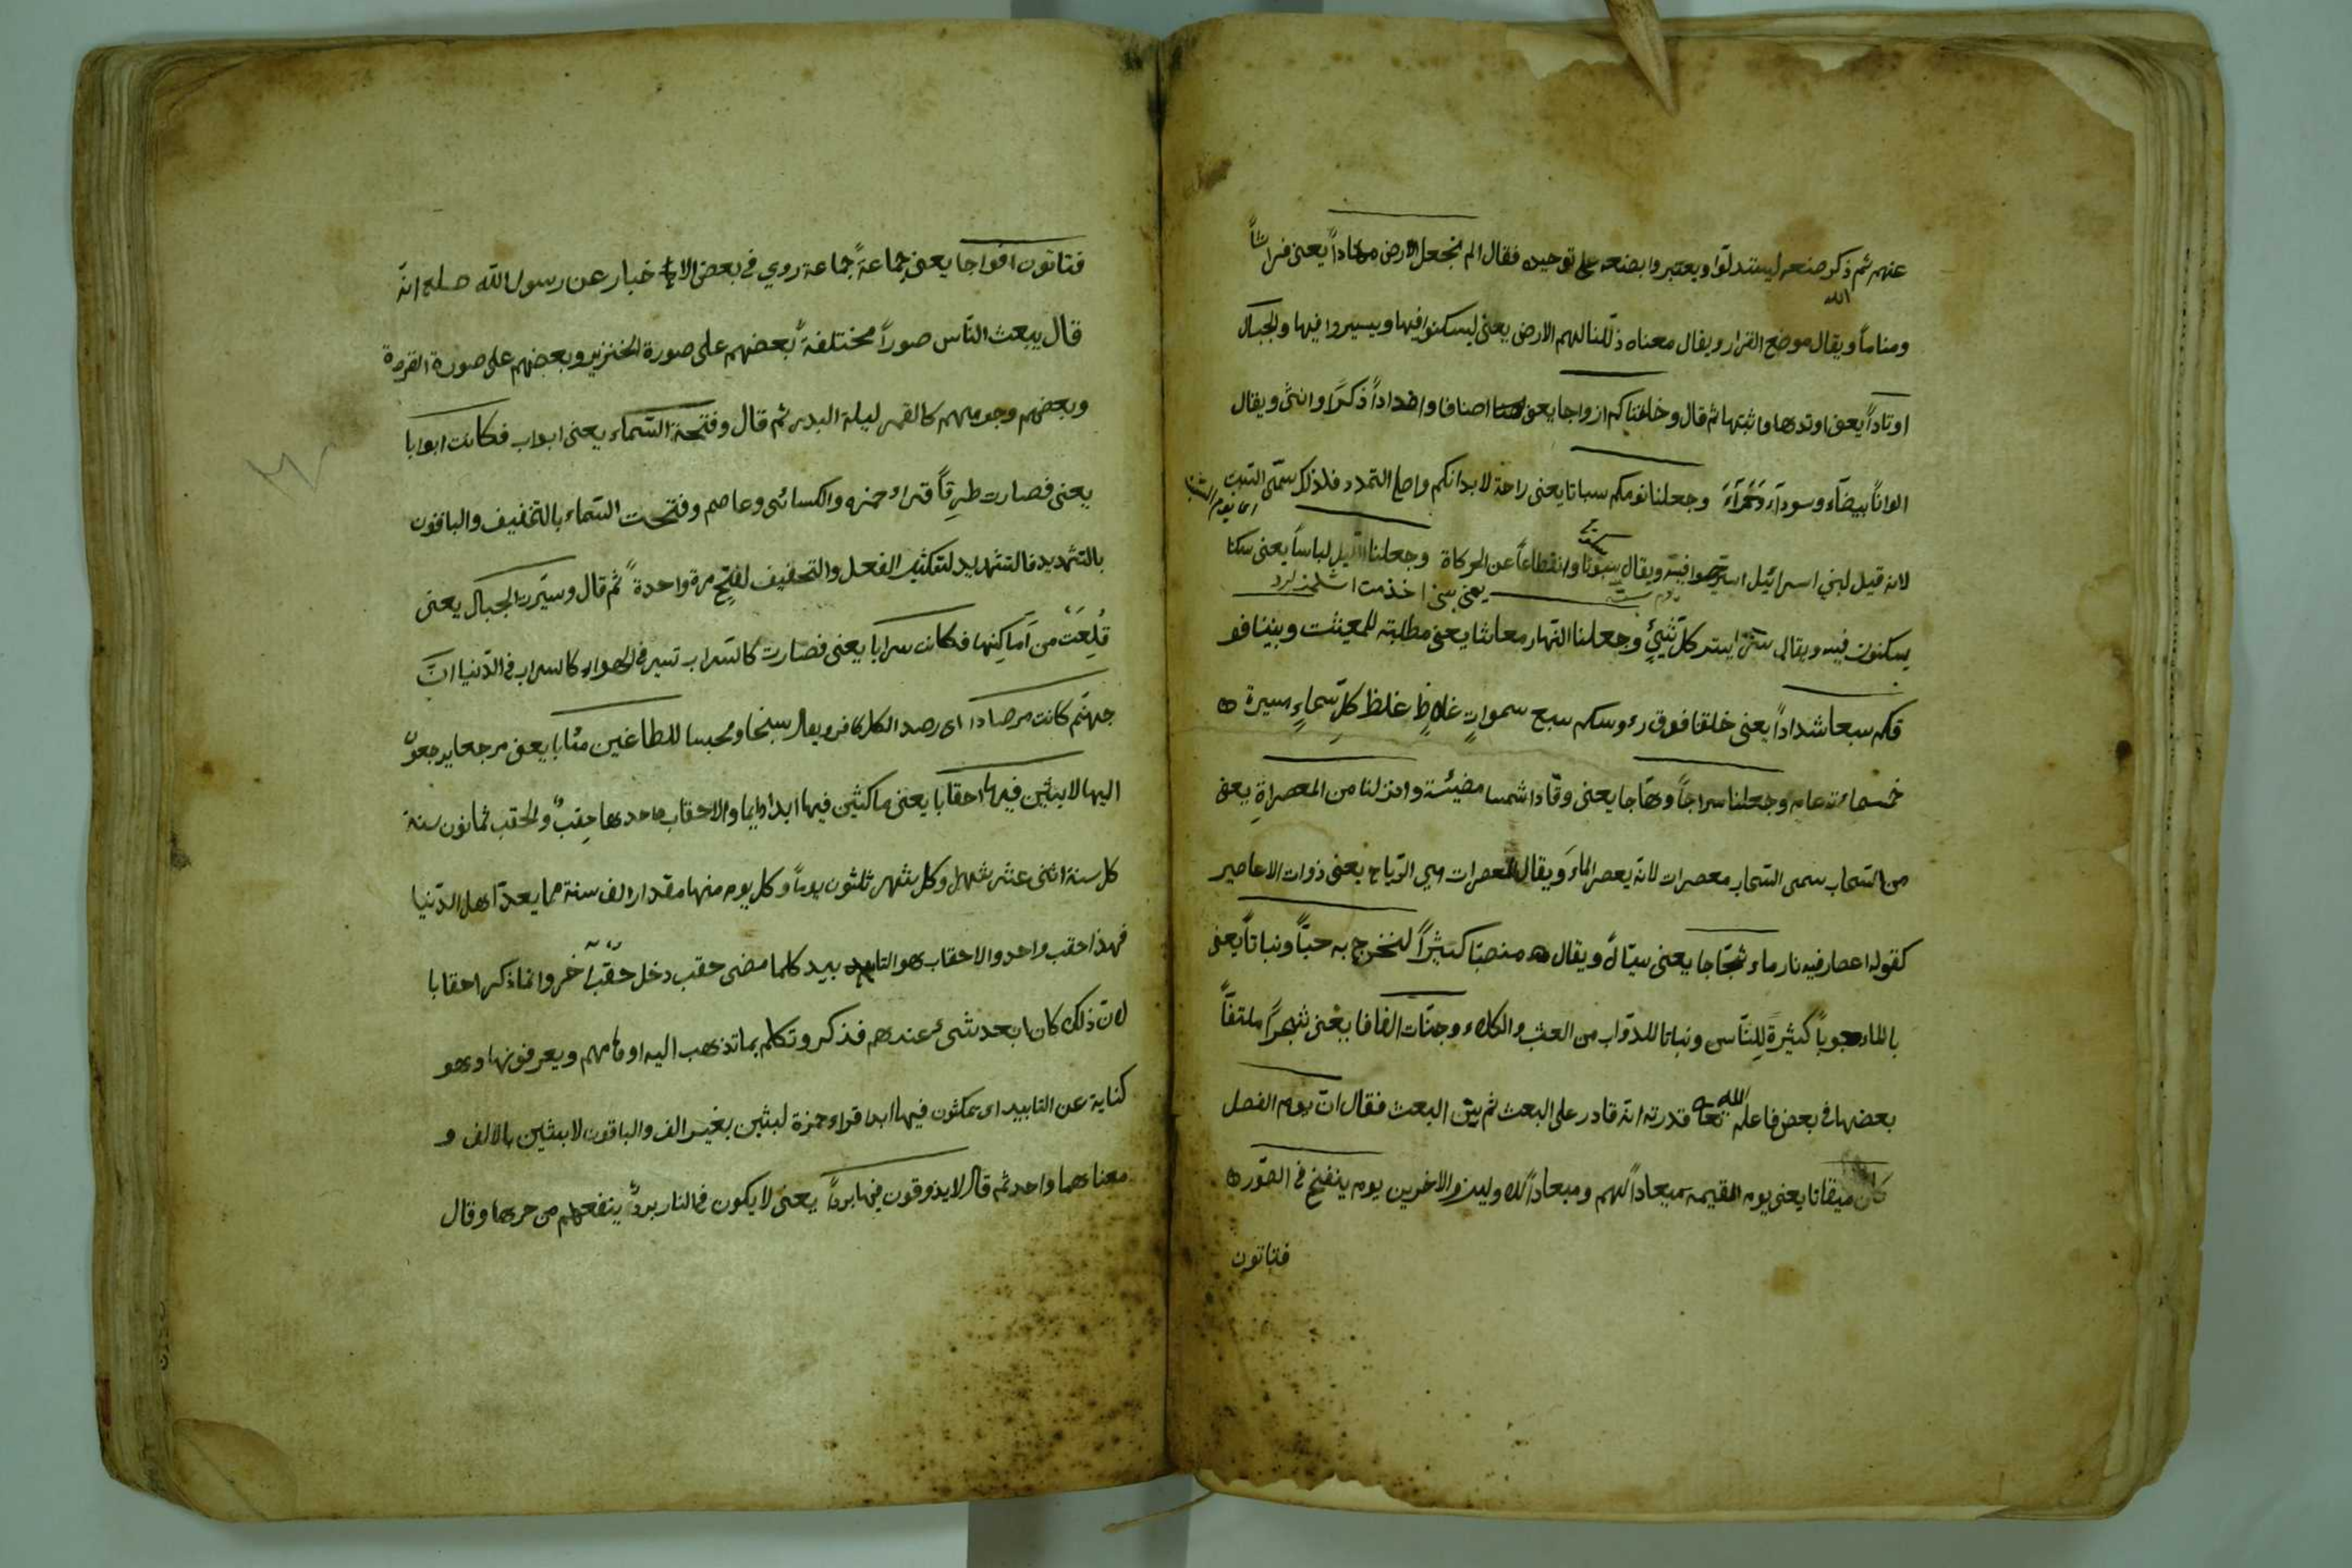 عنهم ثم ذكر صنعه ليستدلوا ويعتبروا بصنعه على توحيده فقال الم نجعل الارض مهاداً يعنى فراشاً
الله
ومناماً ويقال موضع القرار ويقال معناه ذللنا لهم الارض يعنى ليسكنوا فيها ويسيروا فيها والجبال
اوتاداً يعنى اوتدها واثبتها ثم قال وخلقناكم ازواجا يعنى اصنافا واضداداً ذكرًا وانثى ويقال
الواناً بيضآء وسودآء وحمرآء وجعلنا نومكم سباتا يعنى راحة لابدانكم واصل التمدد فلذلك سمّى السبت
لانه قيل لبني اسرائيل استريحوا فيه ويقال سبوتا وانقطاعاً عن الحركاة وجعلنا الليل لباساً يعنى سكنا
يسكنون فيه ويقال ستر يستر كل شيئ وجعلنا النهار معاشا يعنى مطلبته للمعيشت وبنينا فو
قكم سبعا شداداً يعنى خلقنا فوق رءوسكم سبع سمواتٍ غلاظٍ غلظ كلِّ سماءٍ مسيرة
خمسمائة عام وجعلنا سراجاً وهّاجا يعنى وقّادا شمسا مضيئة وانزلنا من المعصراةِ يعنى
من السّحاب سمى السّحاب معصرات لانّه يعصر الماءَ ويقال المعصرات هي الرّياح يعنى ذوات الاعاصير
كقوله اعصار فيه نار ماء ثجّاجا يعنى سيّالاً ويقال منصبّا كثيراً لنخرج به حبّاً ونباتاً يعنى
بالماء حبوباً كثيرةً للنّاس ونباتا للدّواب من العشب والكلاء وجنّات الفافا يعنى شجراً ملتفّاً
بعضها فى بعض فاعلم الله تعا قدرته انه قادر على البعث ثم بيّن البعث فقال انّ يوم الفصل
كان ميقاتا يعنى يوم القيمه ميعاداً لهم وميعاداً للاولين والاخرين يوم ينفخ فى الصّور
فتاتون
فتاتون افواجا يعنى جماعةً جماعة روي فى بعض الاخبار عن رسول الله صلع انّه
قال يبعث النّاس صوراً مختلفةً بعضهم على صورة الخنزير وبعضهم على صورة القردة
وبعضهم وجوههم كالقمر ليلة البدر ثم قال وفتحة السّماء يعنى ابواب فكانت ابوابا
يعنى فصارت طرِقاً قراء حمزه والكسائى وعاصم وفتحت السّماء بالتخفيف والباقون
بالتشديد فالتشديد لتكثير الفعل والتخفيف لفتح مرة واحدة ثم قال وسيّرت الجبال يعنى
قُلِعَت من اَماكِنِها فكانت سرابا يعنى فصارت كالسّراب تسير فى الهواء كالسراب فى الدّنيا انّ
جهنّم كانت مرصادا اى رصد الكل كافر ويقال سجنا ومحبسا للطاغين مئابا يعنى مرجعا يرجعون
اليها لابثين فيها احقابا يعنى ماكثين فيها ابدا دايما والاحقاب واحدها حِقبٌ والحقب ثمانون سنة
كل سنة اثنى عشر شهرا وكل شهر ثلثون يوماً وكل يوم منها مقدار الف سنة مما يعدّ اهل الدّنيا
فهذا حقب واحد والاحقاب هو التابيد كلما مضى حقب دخل حقبٌ آخر وانما ذكر احقابا
لانّ ذلك كان ابعد شىء عندهم فذكر وتكلم بما تذهب اليه اوهامهم ويعرفونها وهو
كناية عن التابيد اى يمكثون فيها ابدا قراء حمزة لبثين بغير الف والباقون لابثين بالالف و
معناهما واحد ثم قال لا يذوقون فيها برداً يعنى لا يكون فى النار بردٌ ينفعهم من حرها وقال